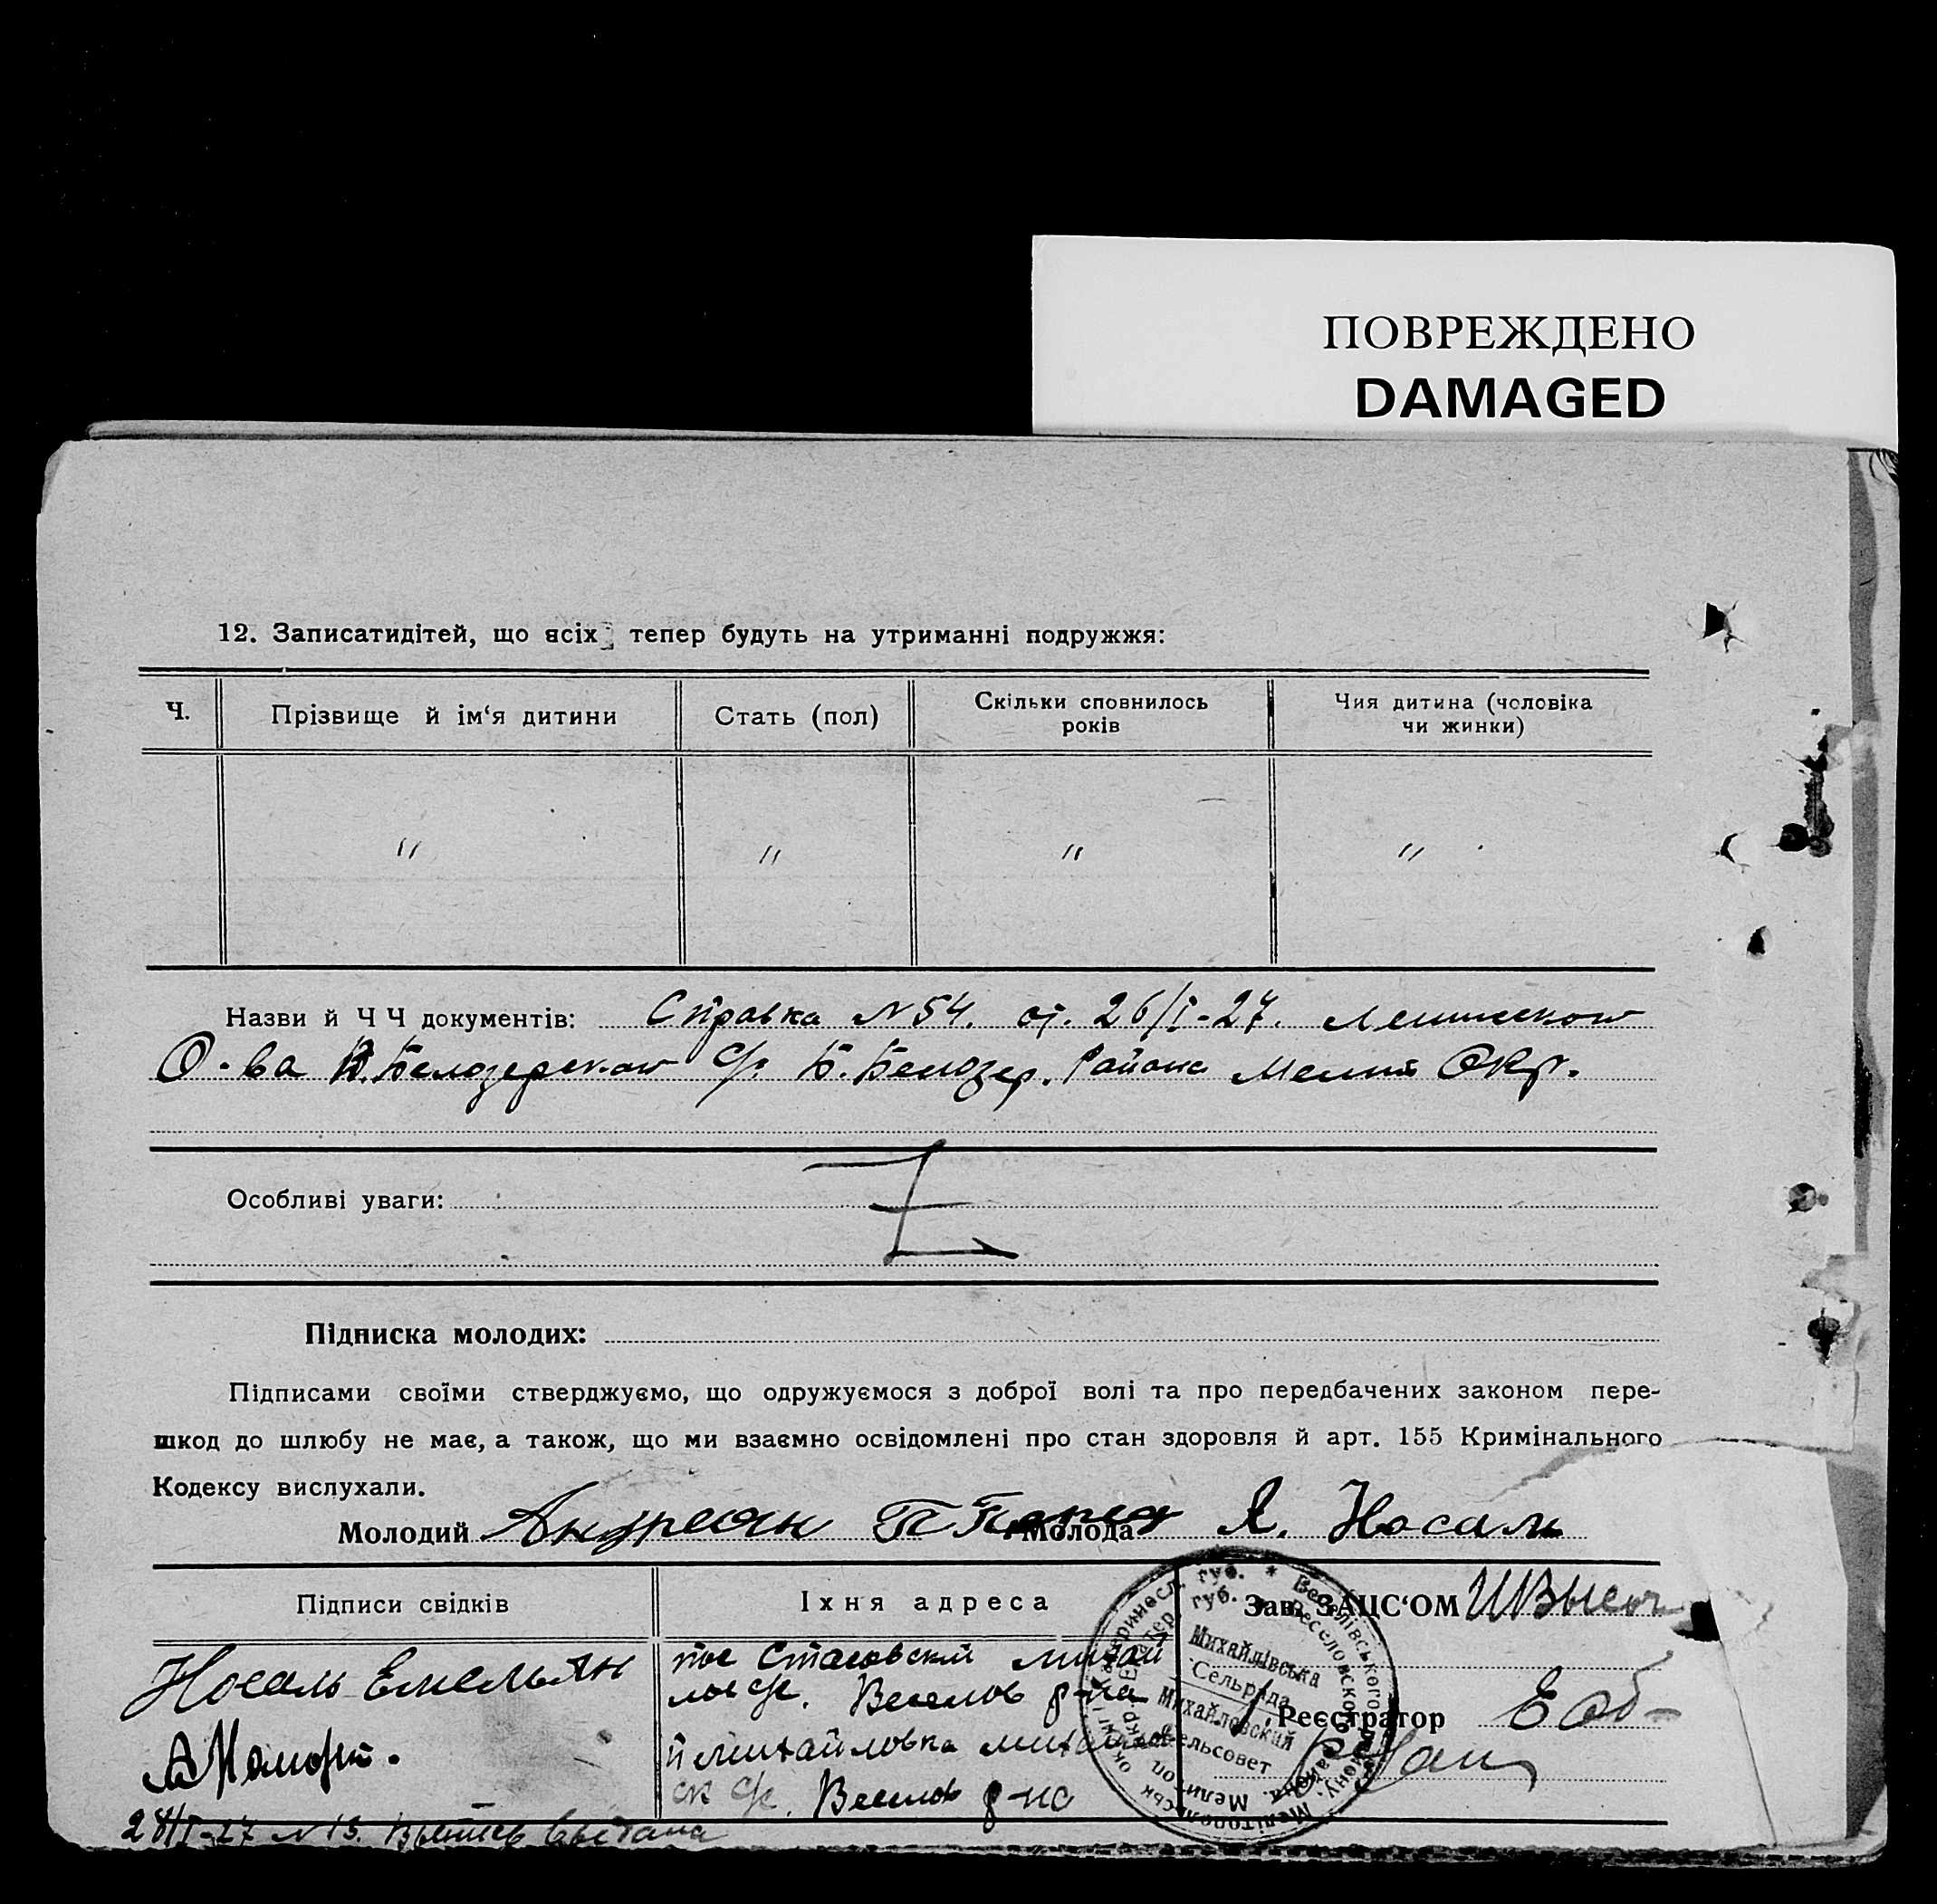 ПОВРЕЖДЕНО
DAMAGED
12. Записатидітей, що всіх тепер будуть на утриманні подружжя:
Ч.
Прізвище й ім‘я дитини
Стать (пол)
Скільки сповнилось
років
Чия дитина (чоловіка
чи жинки)
〃 〃 〃 〃
Назви й Ч Ч документів: Справка N 54. от. 26/I-27.
О-ва Б. Белозерског с/с Б. Белозер. Района Мелит Окр.
Особливі уваги: Z
Підписка молодих:
Підписами своїми стверджуємо, що одружуємося з доброї волі та про передбачених законом пере-
шкод до шлюбу не має, а також, що ми взаємно освідомлені про стан здоровля й арт. 155 Кримінального
Кодексу вислухали.
Молодий Андреян Молода Я. Носаль
Підписи свідків
Їхня адреса
Зав. ЗАЦС‘ОМ
Носаль Емельян
пос Стасовский михай
лов с/с. Веселов р-на
Реєстратор
михайловка
ск с/с. Веселов р-на
Михайлівська
Сельрада
Михайловский
Сельсовет
28/I-27 N 15.